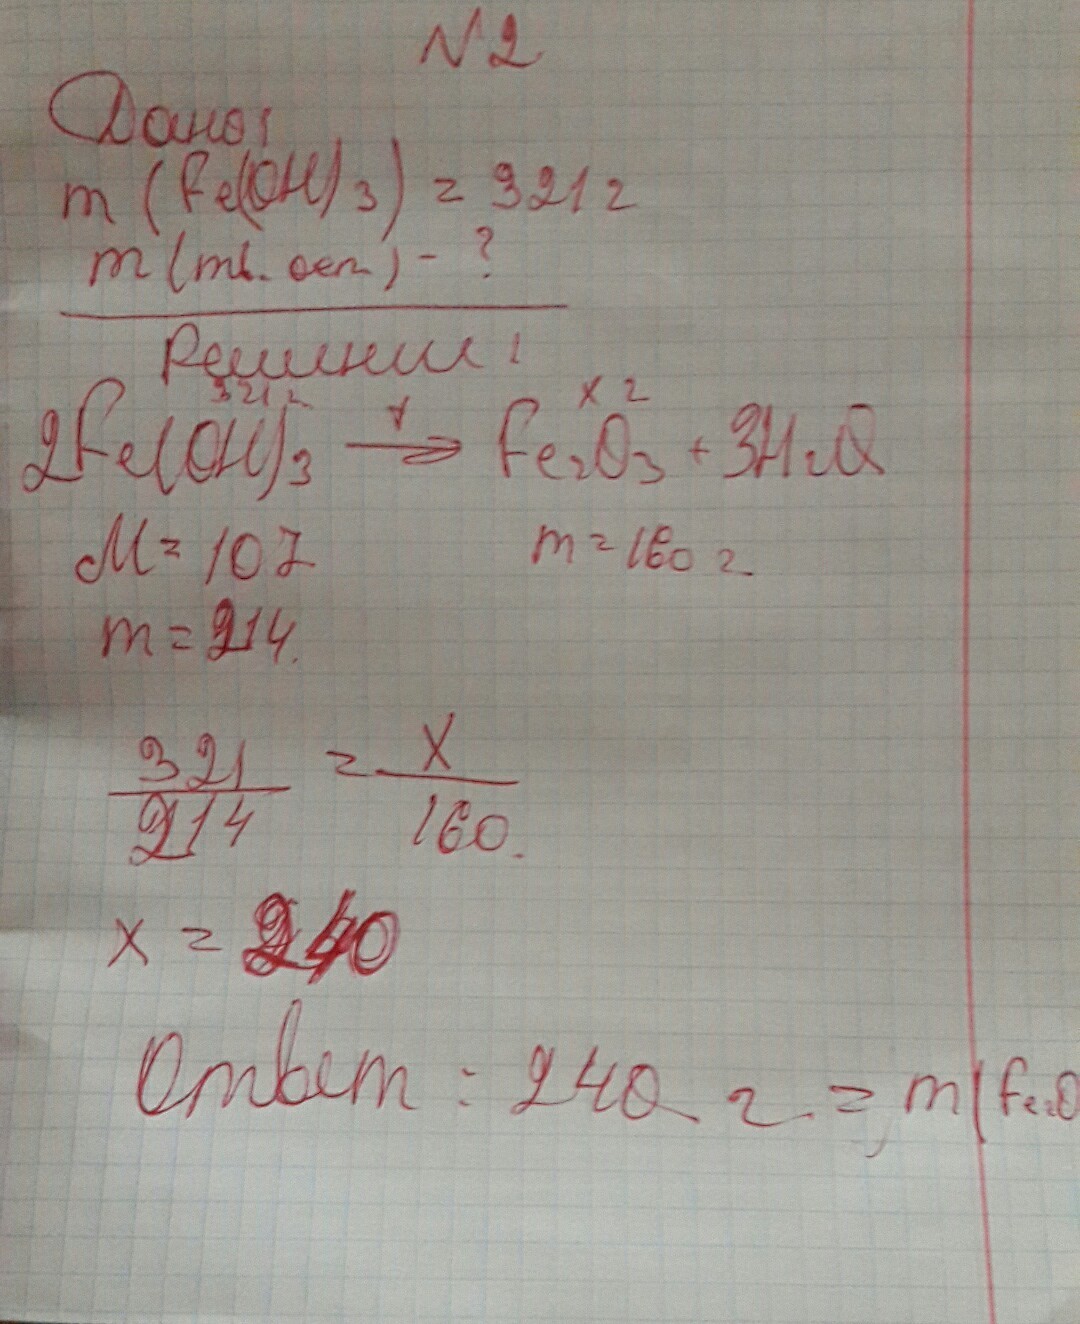 N2
Дано:
m (Fe(OH)3) = 321 г
m (тв. ост.) - ?
Решение:
321 г x г
2Fe(OH)3 → Fe2O3 + 3H2O
M = 107 m = 160 г
m = 214.
321/214 = x/160.
x = 240
Ответ: 240 г. = m(Fe2O